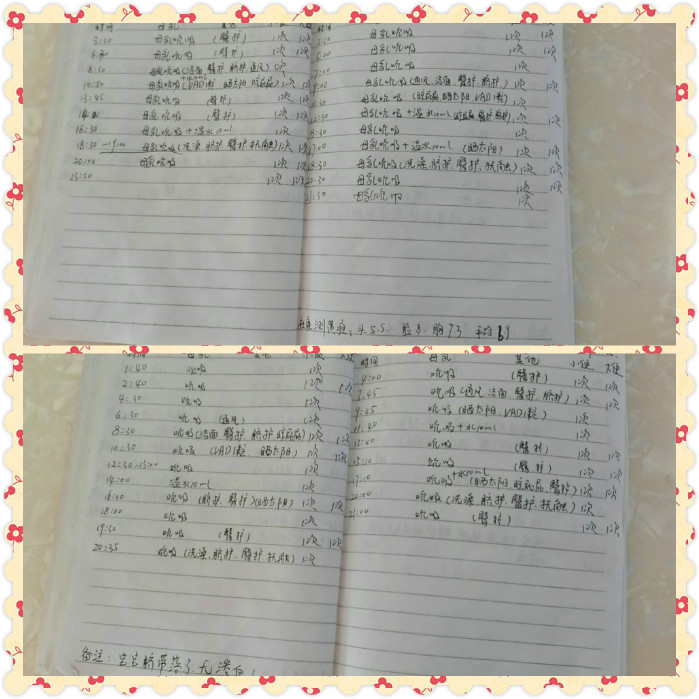 时间 母乳 其他
3:30 母乳吮吸 (臀护) 1次 1次
母乳吮吸 (臀护) 1次 1次
8:30 母乳吮吸 (洁面 臀护 脐护 通风) 1次
10:50 母乳吮吸 (VAD1粒 晒太阳 1次 1次
13:45 母乳吮吸 (臀护) 1次 1次
母乳吮吸 (臀护) 1次 1次
16:30 母乳吮吸 + 温水10ml 1次
18:30-19:00 母乳吮吸 (洗澡 脐护 臀护 抚触) 1次 1次
20:00 母乳吮吸 1次 1次
23:30 1次 1次
母乳吮吸 1次 1次
母乳吮吸 1次
母乳吮吸 1次
7:00 母乳吮吸 1次
母乳吮吸 (通风 洁面 臀护 脐护) 1次 1次
母乳吮吸 (晒太阳 VAD1粒) 1次
母乳吮吸 + 温水10ml 1次
母乳吮吸 1次
17:00 母乳吮吸 + 温水10ml (晒太阳) 1次
18:30 母乳吮吸 (洗澡 脐护 臀护 抚触) 1次 1次
20:30 母乳吮吸 1次 1次
21:30 母乳吮吸 1次
测黄疸: 头5.5 脸8 胸7.3
1:40 吮吸 1次
2:40 吮吸 1次 1次
4:30 吮吸 1次
6:30 吮吸 (通风) 1次
8:30 吮吸 (洁面 臀护 脐护 1次 1次
10:30 吮吸 (VAD1粒 晒太阳) 1次 1次
12:30-13:00 吮吸 1次
14:00 温水10ml 1次
16:00 吮吸 (脐护 臀护)(晒太阳) 1次 1次
18:00 吮吸 1次
19:30 吮吸 (臀护) 1次 1次
20:35 吮吸 (洗澡、脐护、臀护 抚触) 1次
备注: 宝宝脐带落了 无渗血
时间 母乳 其他 小便 大便
4:00 吮吸 (臀护) 1次 1次
7:45 吮吸 (通风 洁面 臀护 脐护) 1次 1次
9:25 吮吸 (晒太阳、VAD1粒) 1次
吮吸+水10ml 1次
12:40 吮吸 (臀护) 1次 1次
15:10 吮吸 (臀护) 1次 1次
17:10 吮吸+水10ml (晒太阳 臀护) 1次 1次
20:00 吮吸 (洗澡 脐护 臀护 抚触) 1次 1次
吮吸 (臀护) 1次 1次